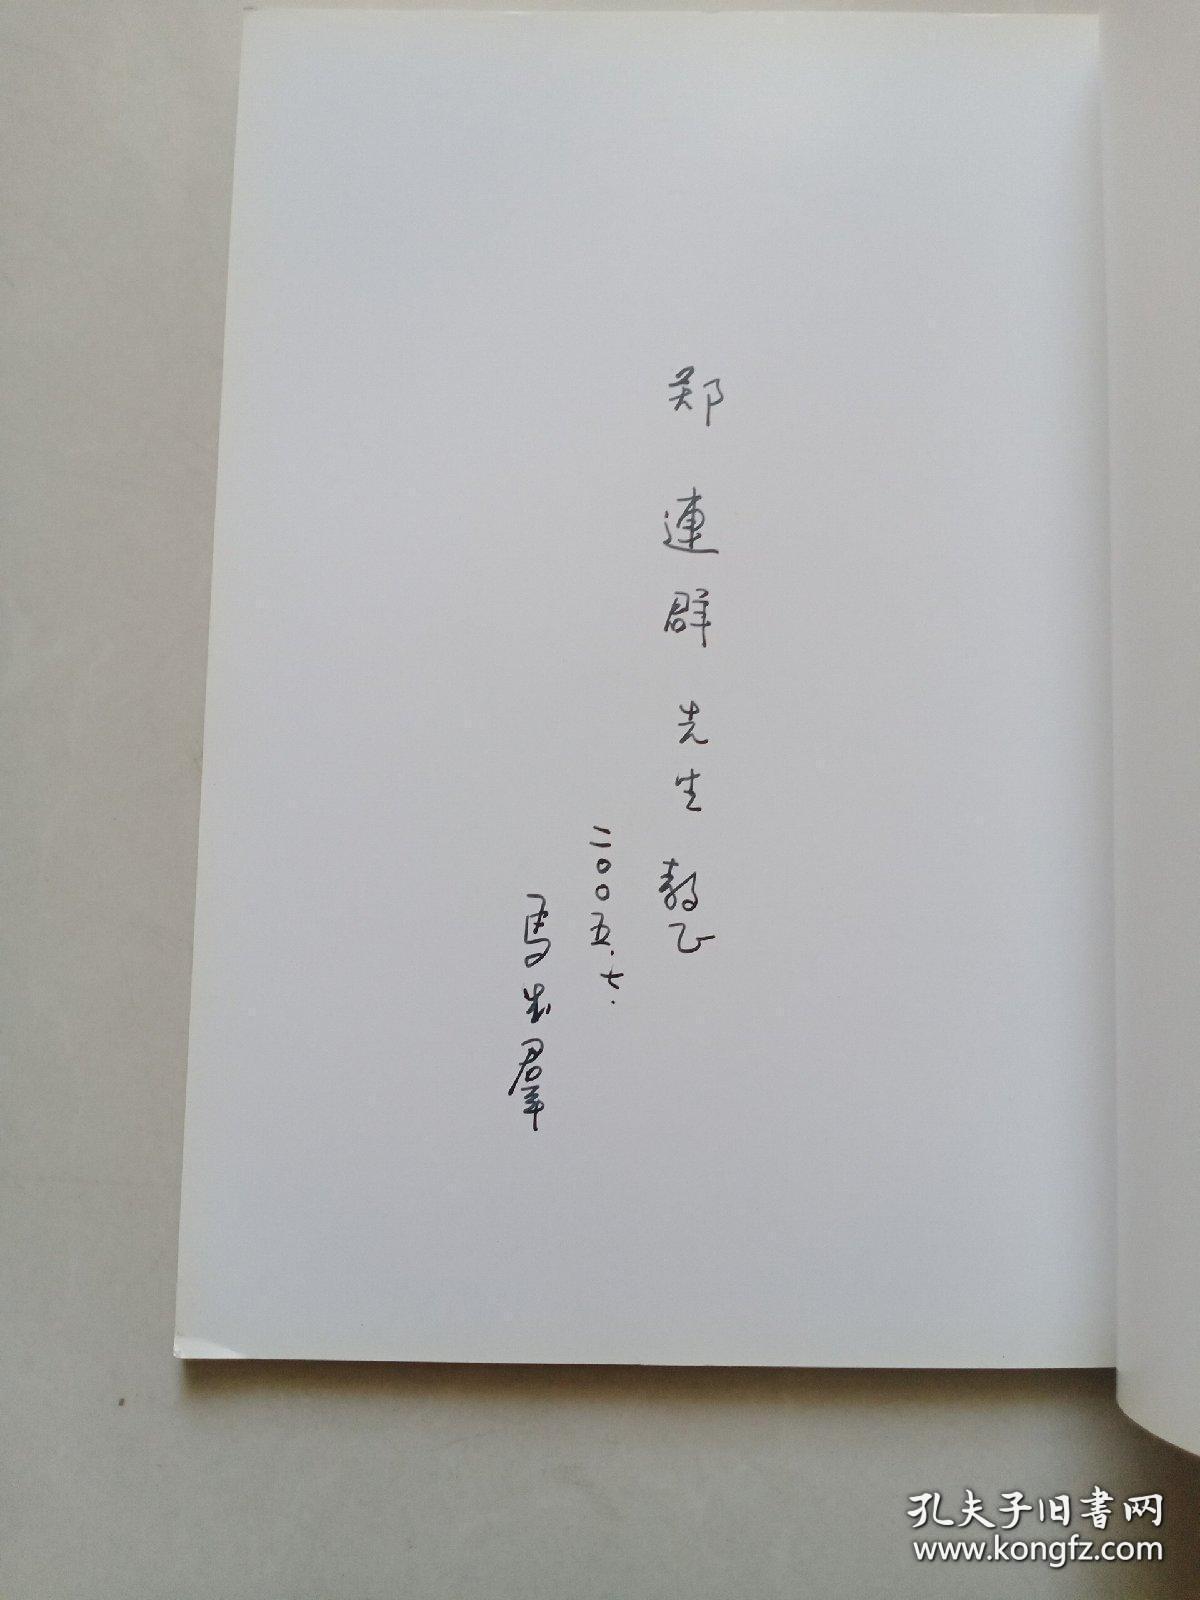 郑連群先生教正
二〇〇五.七.
馬生羣
孔夫子旧書网
www.kongfz.com